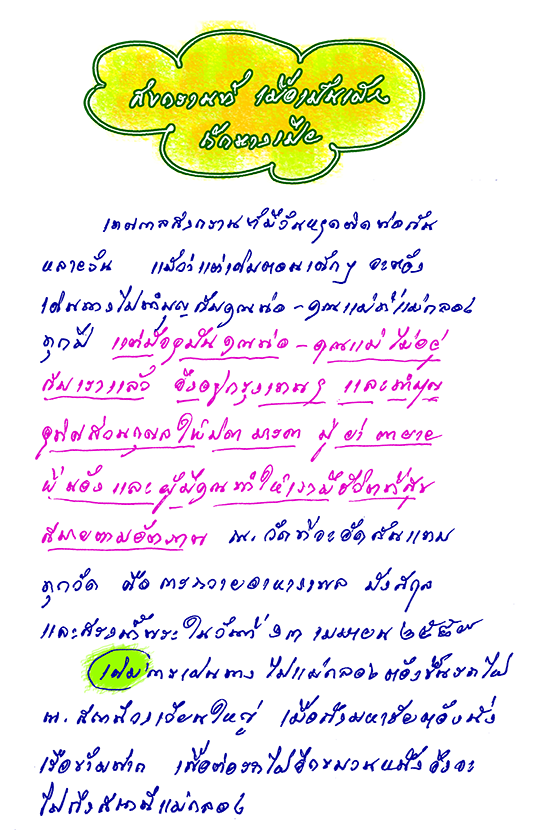 สงกรานต์ เมื่อฉันเป็น
เด็กนางเมือง
เทศกาลสงกรานต์มีวันหยุดติดต่อกัน
หลายวัน แม้ว่าแต่เดิมตอนเด็กๆ จะต้อง
เดินทางไปทำบุญกับคุณพ่อ - คุณแม่ที่แม่กลอง
ทุกปี แต่เมื่อปัจจุบันคุณพ่อ - คุณแม่ ไม่อยู่
กับเราแล้ว จึงอยู่กรุงเทพฯ และทำบุญ
อุทิศส่วนกุศลให้บิดา มารดา ปู่ ย่า ตายาย
พี่น้อง และผู้มีคุณทำให้เรามีชีวิตที่สุข
สบายตามอัตภาพ ณ. วัดที่จะจัดกันแทบ
ทุกวัด คือ การถวายอาหารเพล บังสกุล
และสรงน้ำพระ ในวันที่ ๑๓ เมษายน ๒๕๕๗
เดิม การเดินทาง ไปแม่กลอง ต้องขึ้นรถไฟ
ณ. สถานีวงเวียนใหญ่ เมื่อถึงมหาชัยต้องนั่ง
เรือข้ามฟาก เพื่อต่อรถไฟอีกขบวนหนึ่งจึงจะ
ไปถึงสถานีแม่กลอง